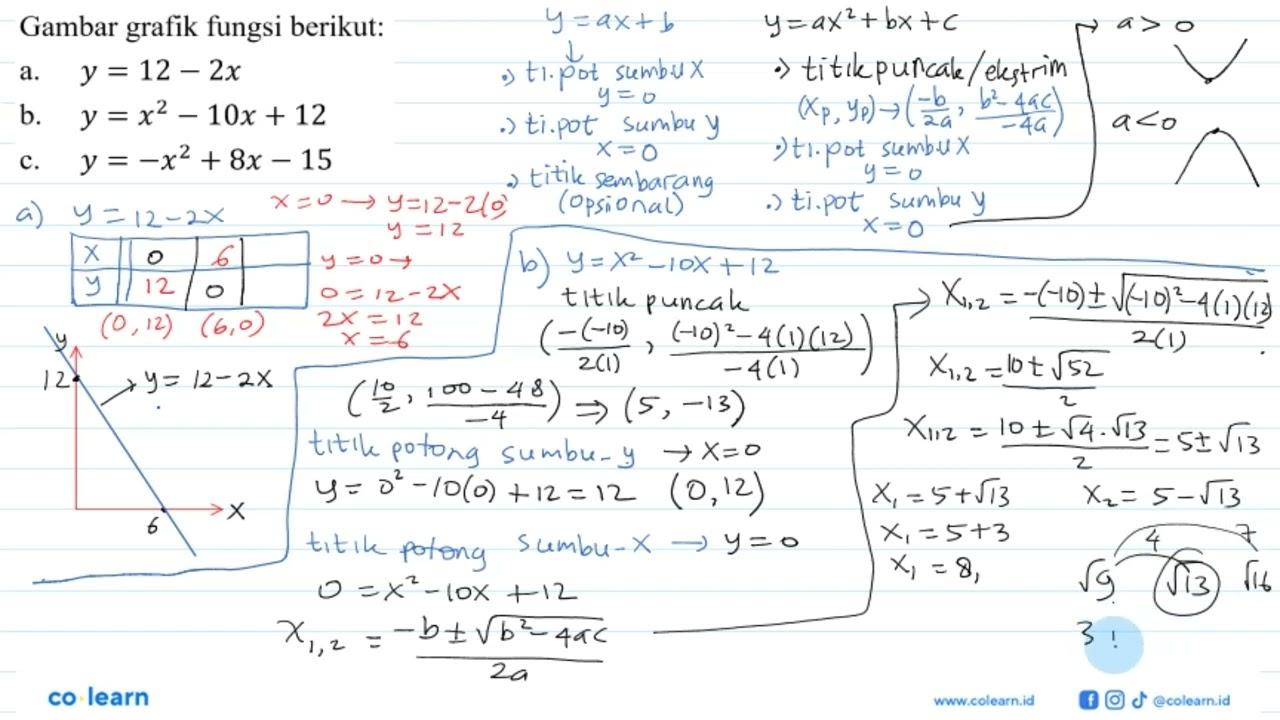 Gambar grafik fungsi berikut:
a. y = 12 − 2x
b. y = x² − 10x + 12
c. y = −x² + 8x − 15
y = ax + b
↓
•) ti.pot sumbu x
y = 0
•) ti.pot sumbu y
x = 0
•) titik sembarang
(opsional)
y = ax² + bx + c
•) titik puncak/ekstrim
(xp, yp) → (-b/2a, b² - 4ac/-4a)
•) ti.pot sumbu x
y = 0
•) ti.pot sumbu y
x = 0
a > 0
a < 0
a) y = 12 - 2x
x = 0 → y = 12 - 2(0)
y = 12
x 0 6
y 12 0
(0, 12) (6, 0)
y = 0 →
0 = 12 - 2x
2x = 12
x = 6
y
12
y = 12 - 2x
6
x
b) y = x² - 10x + 12
titik puncak
(-(-10)/2(1), (-10)² - 4(1)(12)/-4(1))
(10/2, 100 - 48/-4) ⇒ (5, -13)
titik potong sumbu-y → x = 0
y = 0² - 10(0) + 12 = 12 (0, 12)
titik potong sumbu-x → y = 0
0 = x² - 10x + 12
x1,2 = -b ± √b² - 4ac/2a
x1,2 = -(-10) ± √(-10)² - 4(1)(12)/2(1)
x1,2 = 10 ± √52/2
x1,2 = 10 ± √4 . √13/2 = 5 ± √13
x1 = 5 + √13 x2 = 5 - √13
x1 = 5 + 3
x1 = 8,
4 7
√9 √13 √16
3
co learn
www.colearn.id
@colearn.id